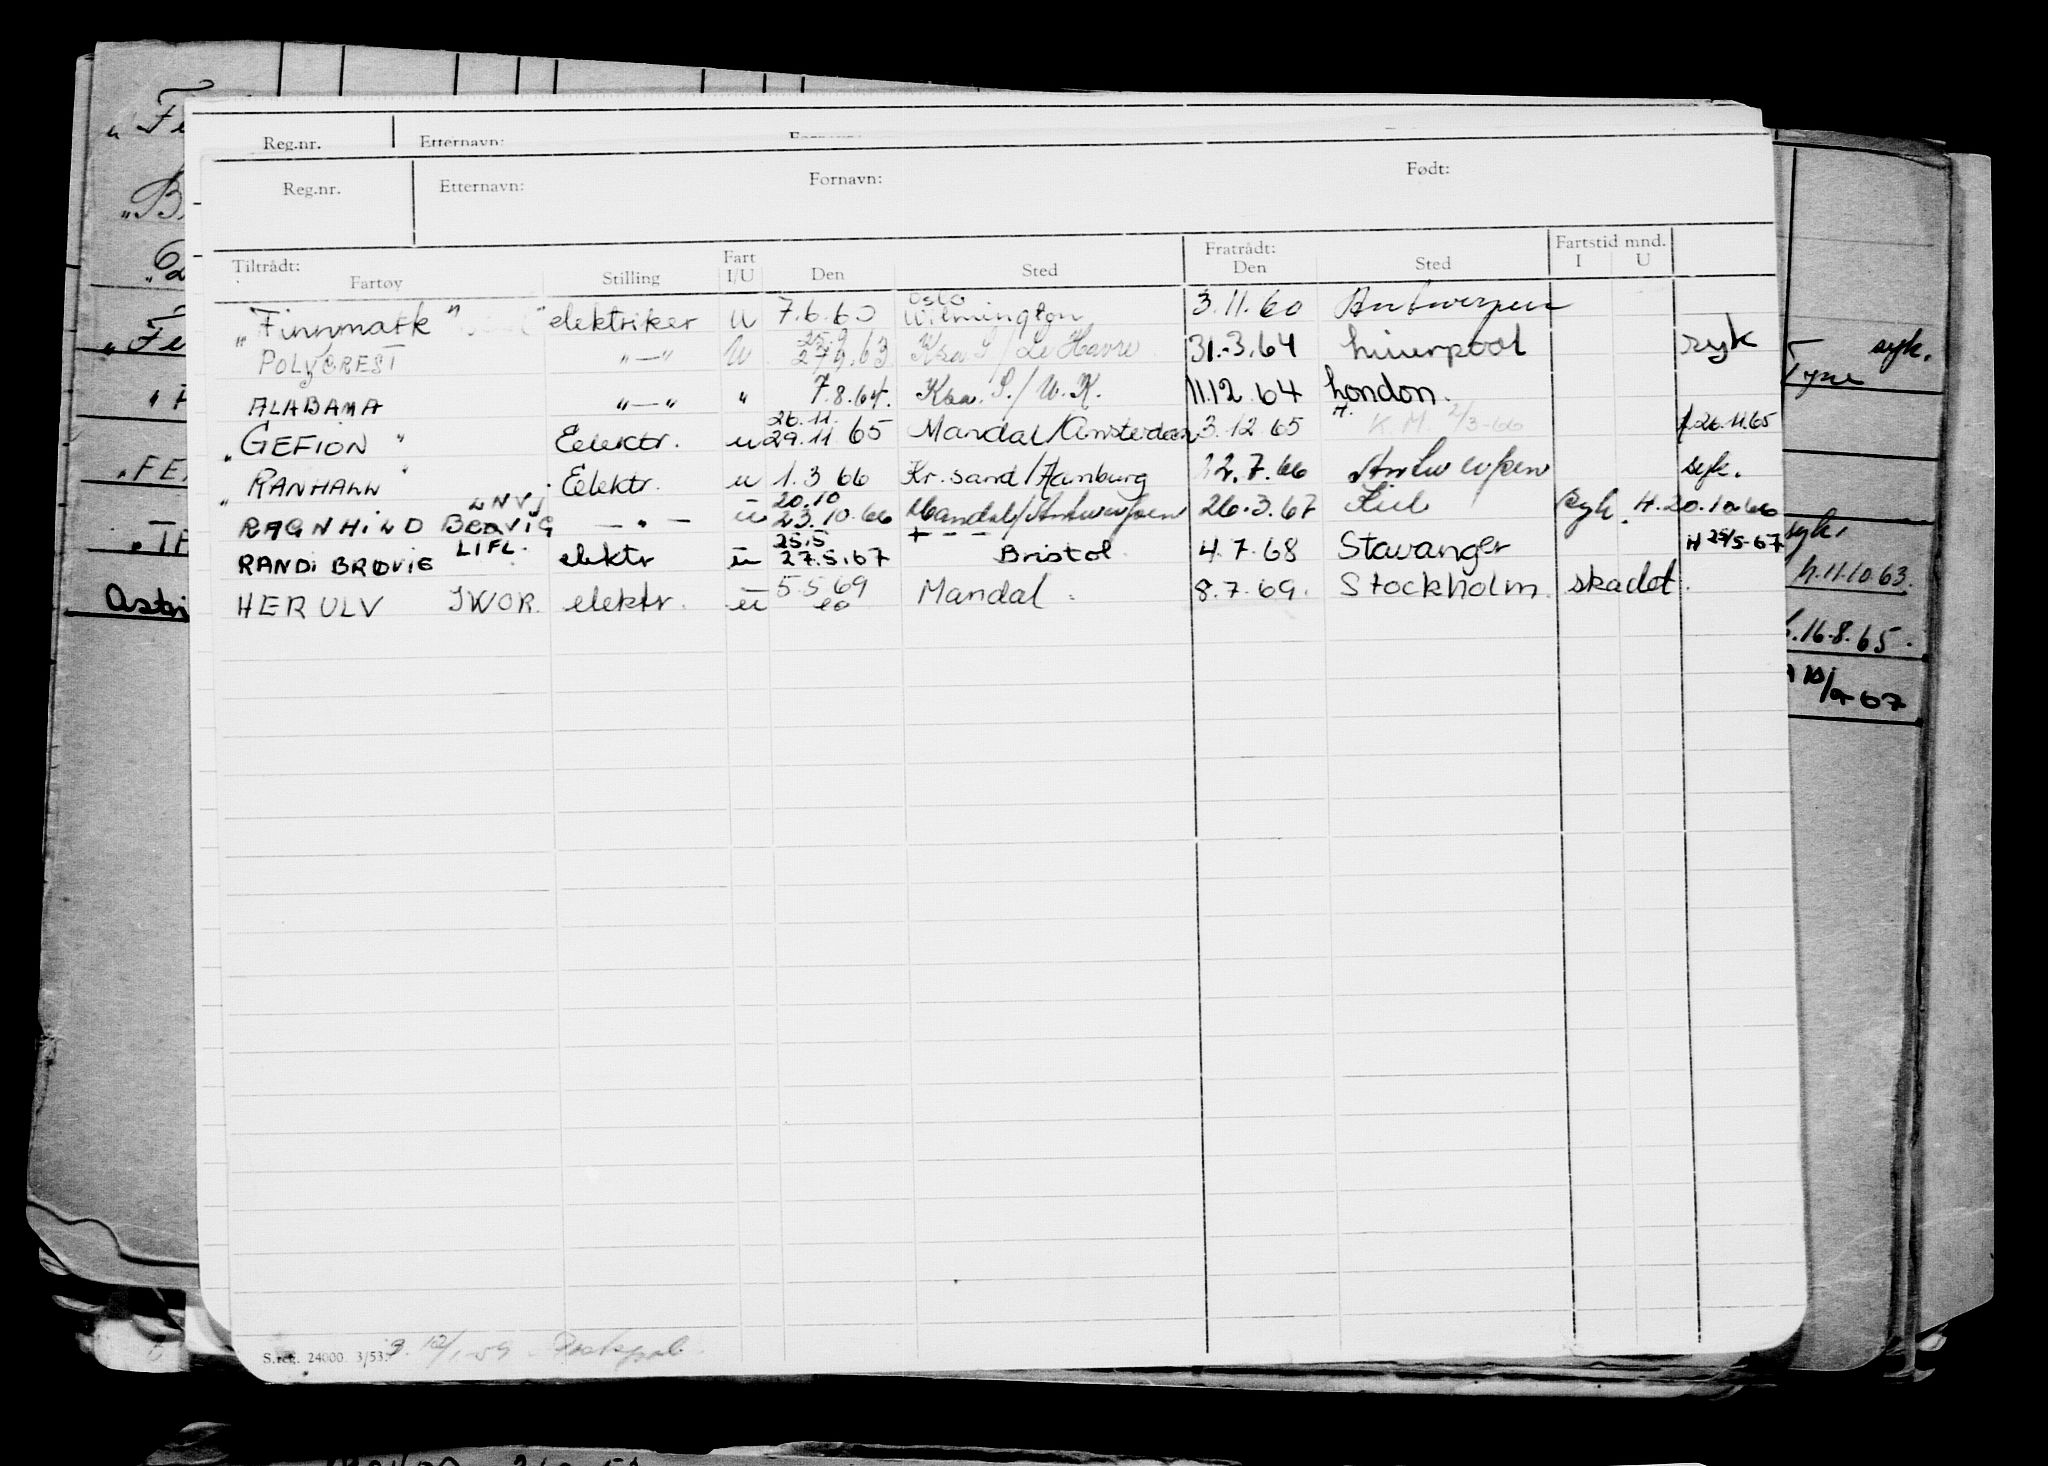 Reg.nr. Etternavn: Fornavn:
Reg.nr. Etternavn: Fornavn: Født:
Tiltrådt: Fratrådt: Fartstid mnd.
Fartøy Stilling Fart I/U Den Sted Den Sted I U
Oslo
"Finnmark" elektriker u 7.6.60 Wilmington 3.11.60 Antwerpen
25.9
POLYCREST "—" U 27.9.63 Krsa S/Le Havre 31.3.64 Liverpool syk
ALABAMA "—" " 7.8.64. Krsa. S./U.K. 11.12.64 London.
26.11.
"GEFION" Elektr. u 29.11.65 Mandal/Amsterdam 3.12.65 H. K.M. 2/3-66 26.11.65
"RANHALL" Elektr. u 1.3 66 Kr.sand/Hamburg 22.7.66 Antwerpen syk.
LNVJ 20.10
RAGNHILD BRØVIG —"— u 23.10.66 Mandal/Antwerpen 26.3.67 Kiel syk. H.20.10.66
LIFL. 25.5
RANDI BRØVIG elektr u 27.5.67 Bristol 4.7.68 Stavanger H 25/5-67
HERULV JWOR. elektr. u 5.5.69 Mandal. 8.7.69. Stockholm skadet.
S.reg. 24000. 3/53.
syk.
Tyne
syk.
h.11.10.63.
h.16.8.65.